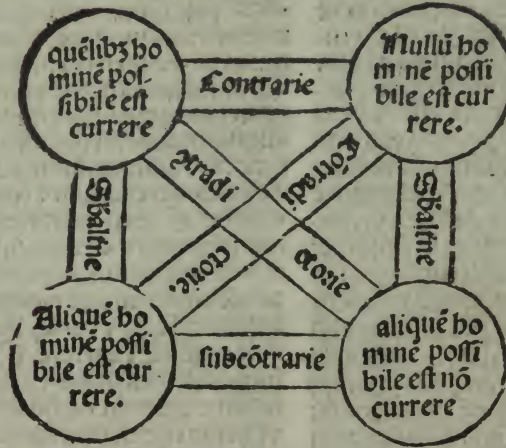 quēlibꝫ ho
minē pos-
sibile est
currere
Contrarie
Nullū ho
m nē possi
bile est cur
rere.
Sbaltne
Cōtradi
ctorie.
Ctradi
ctorie
Sbaltne
Aliquē ho
minē possi
bile est cur
rere.
subcōtrarie
aliquē ho
minē possi
bile est nō
currere